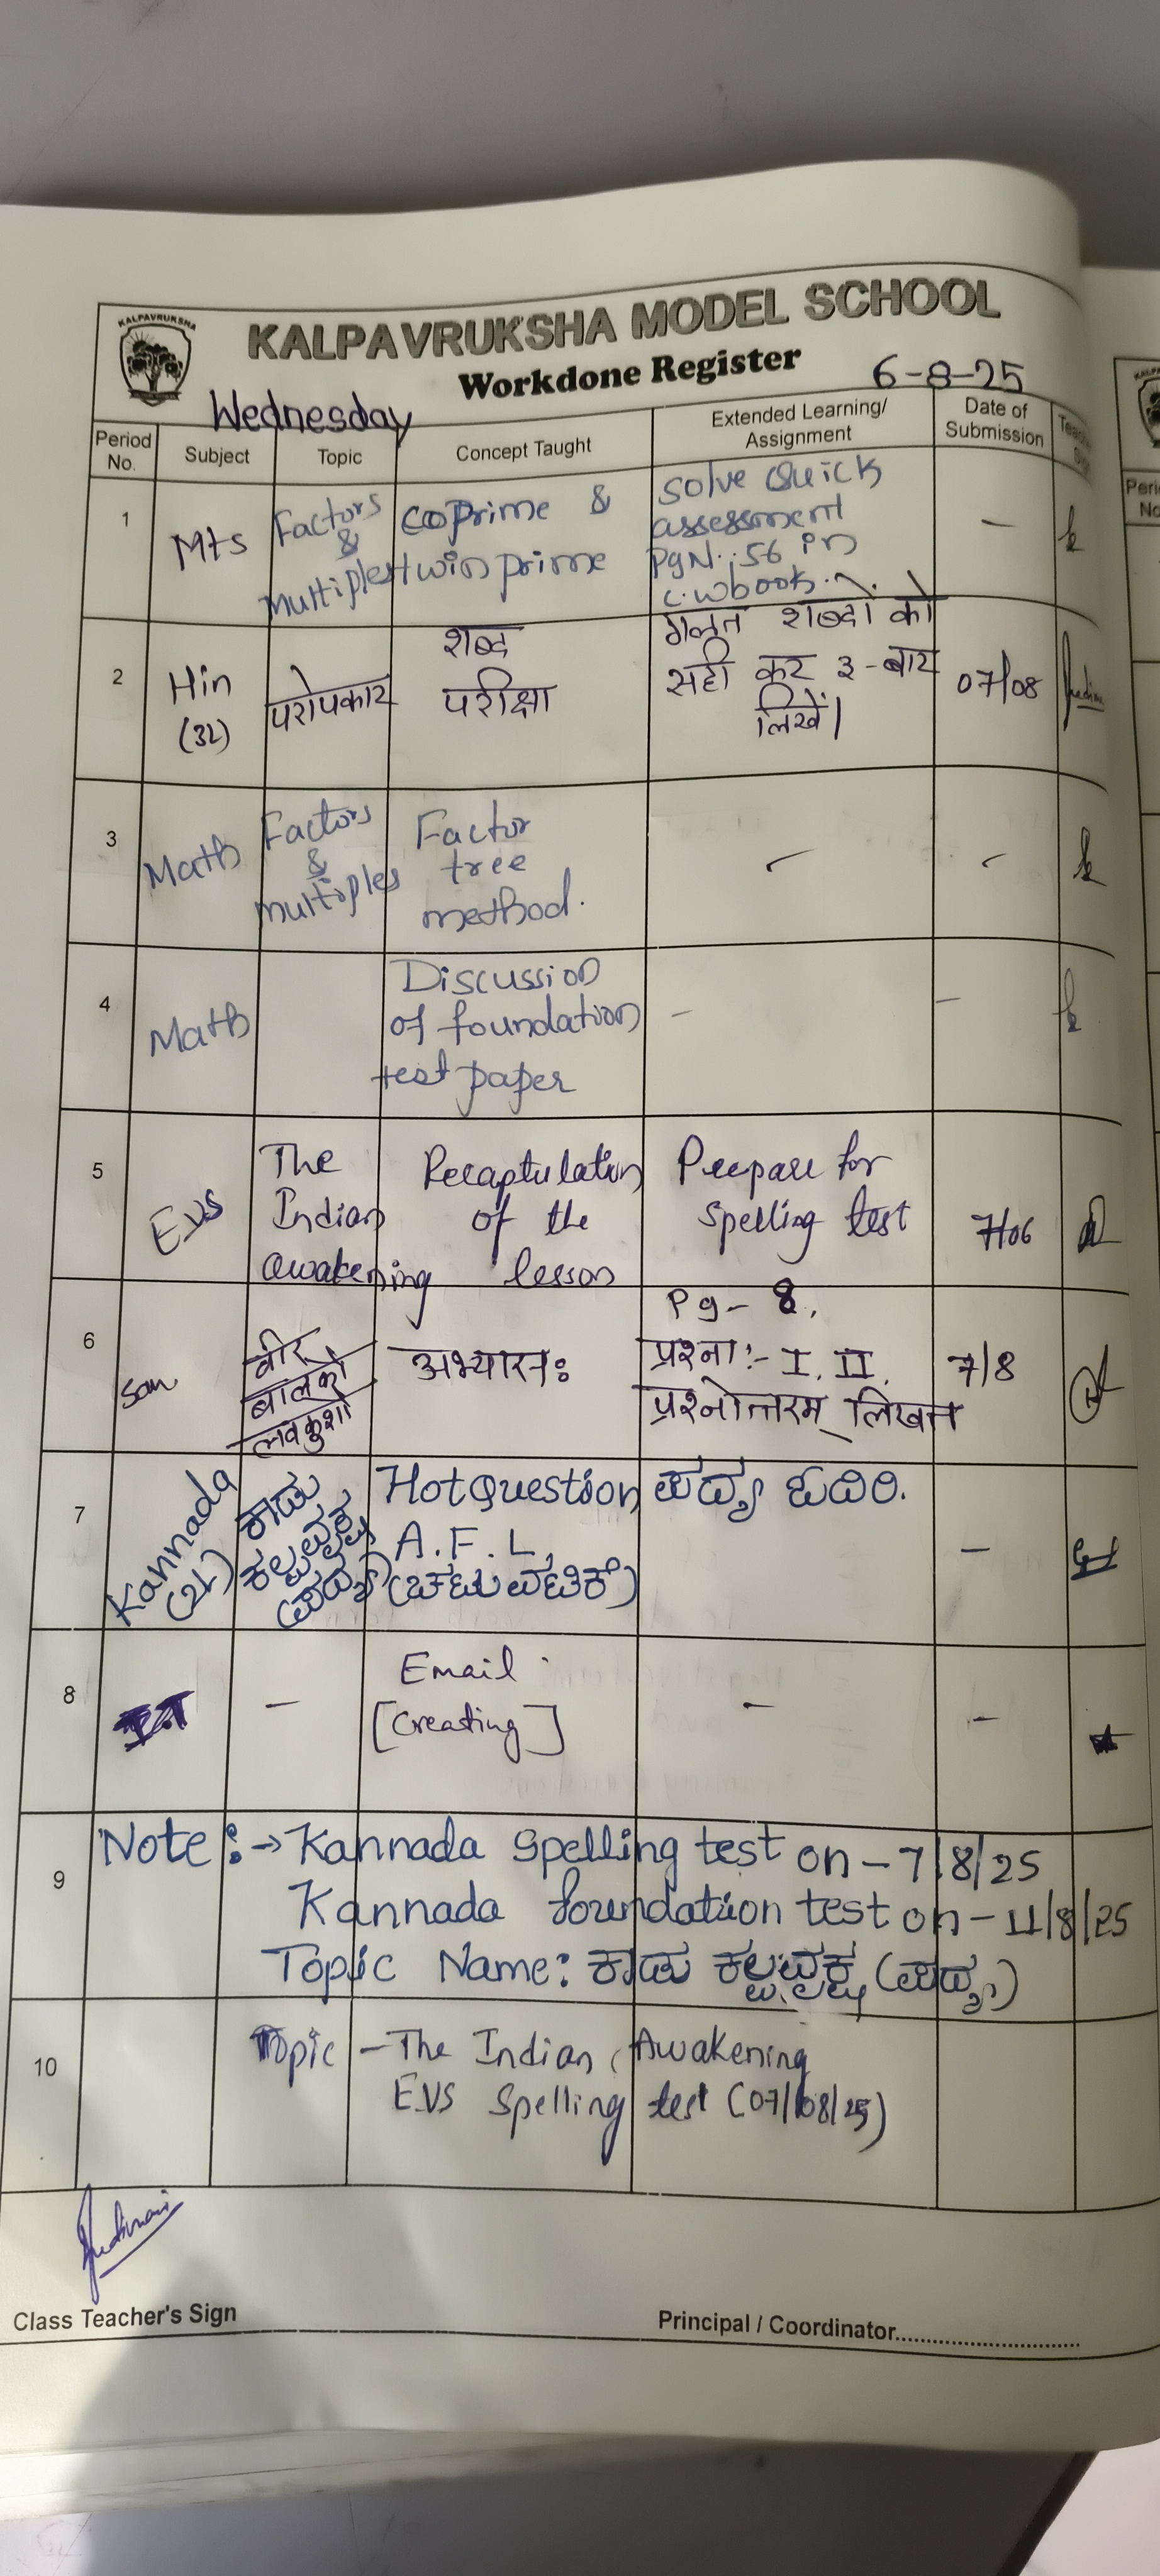 KALPAVRUKSHA
KALPAVRUKSHA MODEL SCHOOL
Workdone Register
6-8-25
Wednesday
Period No.
Subject
Topic
Concept Taught
Extended Learning/
Assignment
Date of
Submission
1
Mts
Factors
&
multiples
coprime &
twin prime
solve Quick
assessment
PgN.:56 in
c.wbook.
–
2
Hin
(3L)
परोपकार
शब्द
परीक्षा
गलत शब्दों को
सही कर ३-बार
लिखें।
07/08
3
Math
Factors
&
multiples
Factor
tree
method.
4
Math
Discussion
of foundation
test paper
–
–
5
EVS
The
Indian
awakening
Recaptulation
of the
lesson
Prepare for
spelling test
6
San
वीर
बालकौ
लवकुशौ
अभ्यासः
Pg- 8.
प्रश्ना:- I, II,
प्रश्नोत्तरम् लिखत
7/8
7
Kannada
(2L)
ಕಾಡು
ಕಲ್ಪವೃಕ್ಷ
(ಪದ್ಯ)
Hot Question
A.F.L.
(ಚಟುವಟಿಕೆ)
ಪದ್ಯ ಓದಿರಿ.
–
8
I.T
–
Email
[Creating]
–
–
9
Note :→ Kannada Spelling test on – 7/8/25
Kannada foundation test on – 11/8/25
Topic Name: ಕಾಡು ಕಲ್ಪವೃಕ್ಷ (ಪದ್ಯ)
10
Topic – The Indian Awakening
EVS Spelling test (07/08/25)
Class Teacher's Sign
Principal / Coordinator..............................